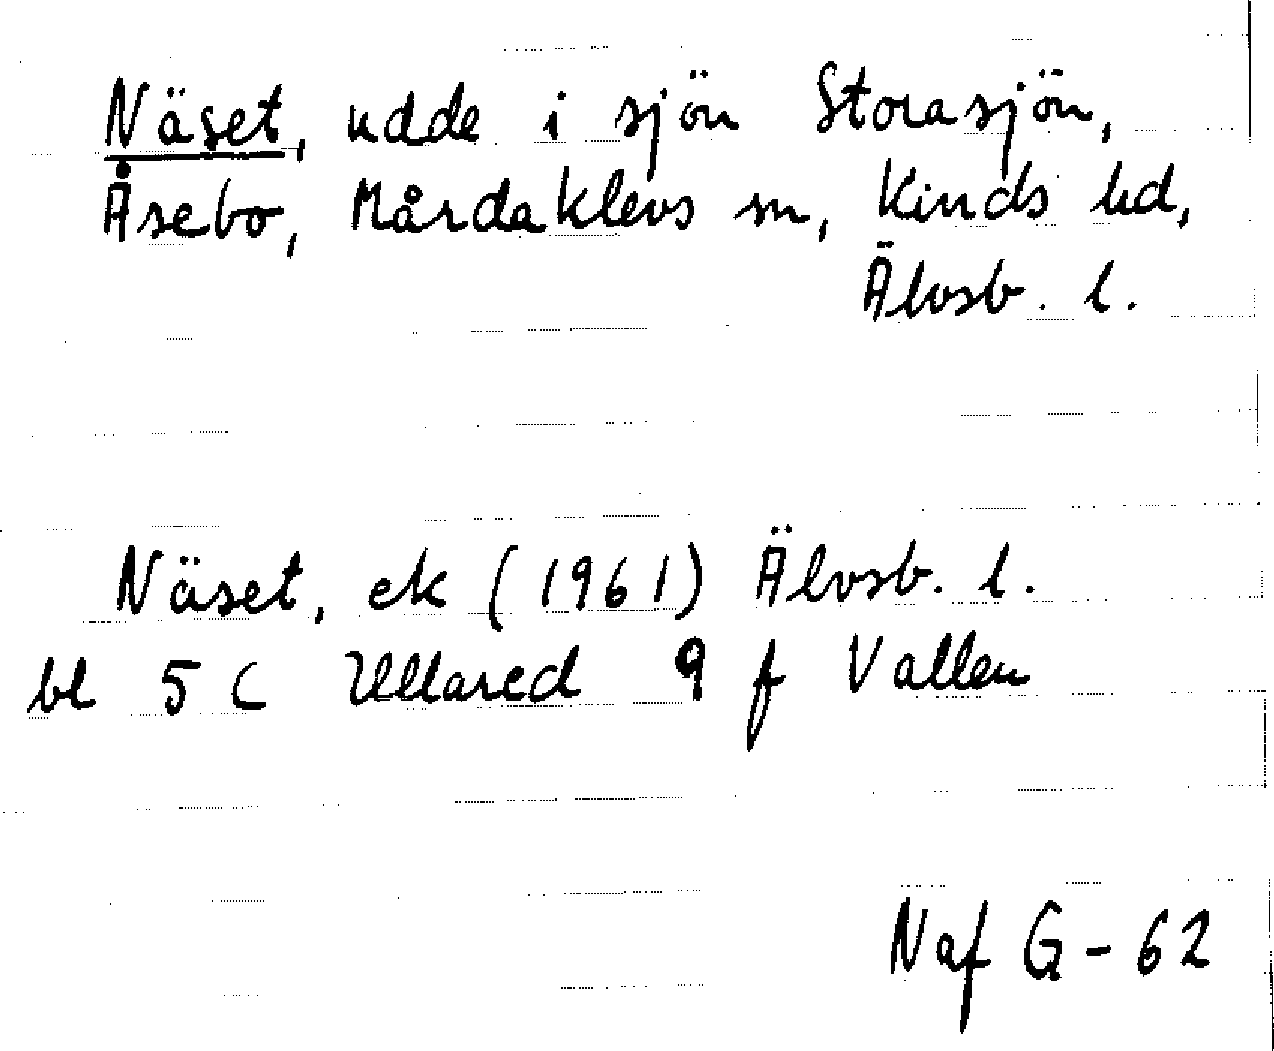 Näset, udde i sjön Storasjön,
Åsebo, Mårdaklevs sn, Kinds hd,
Älvsb. l.
Näset, ek (1961) Älvsb. l.
bl 5 C Ullared 9 f Vallen
Naf G-62